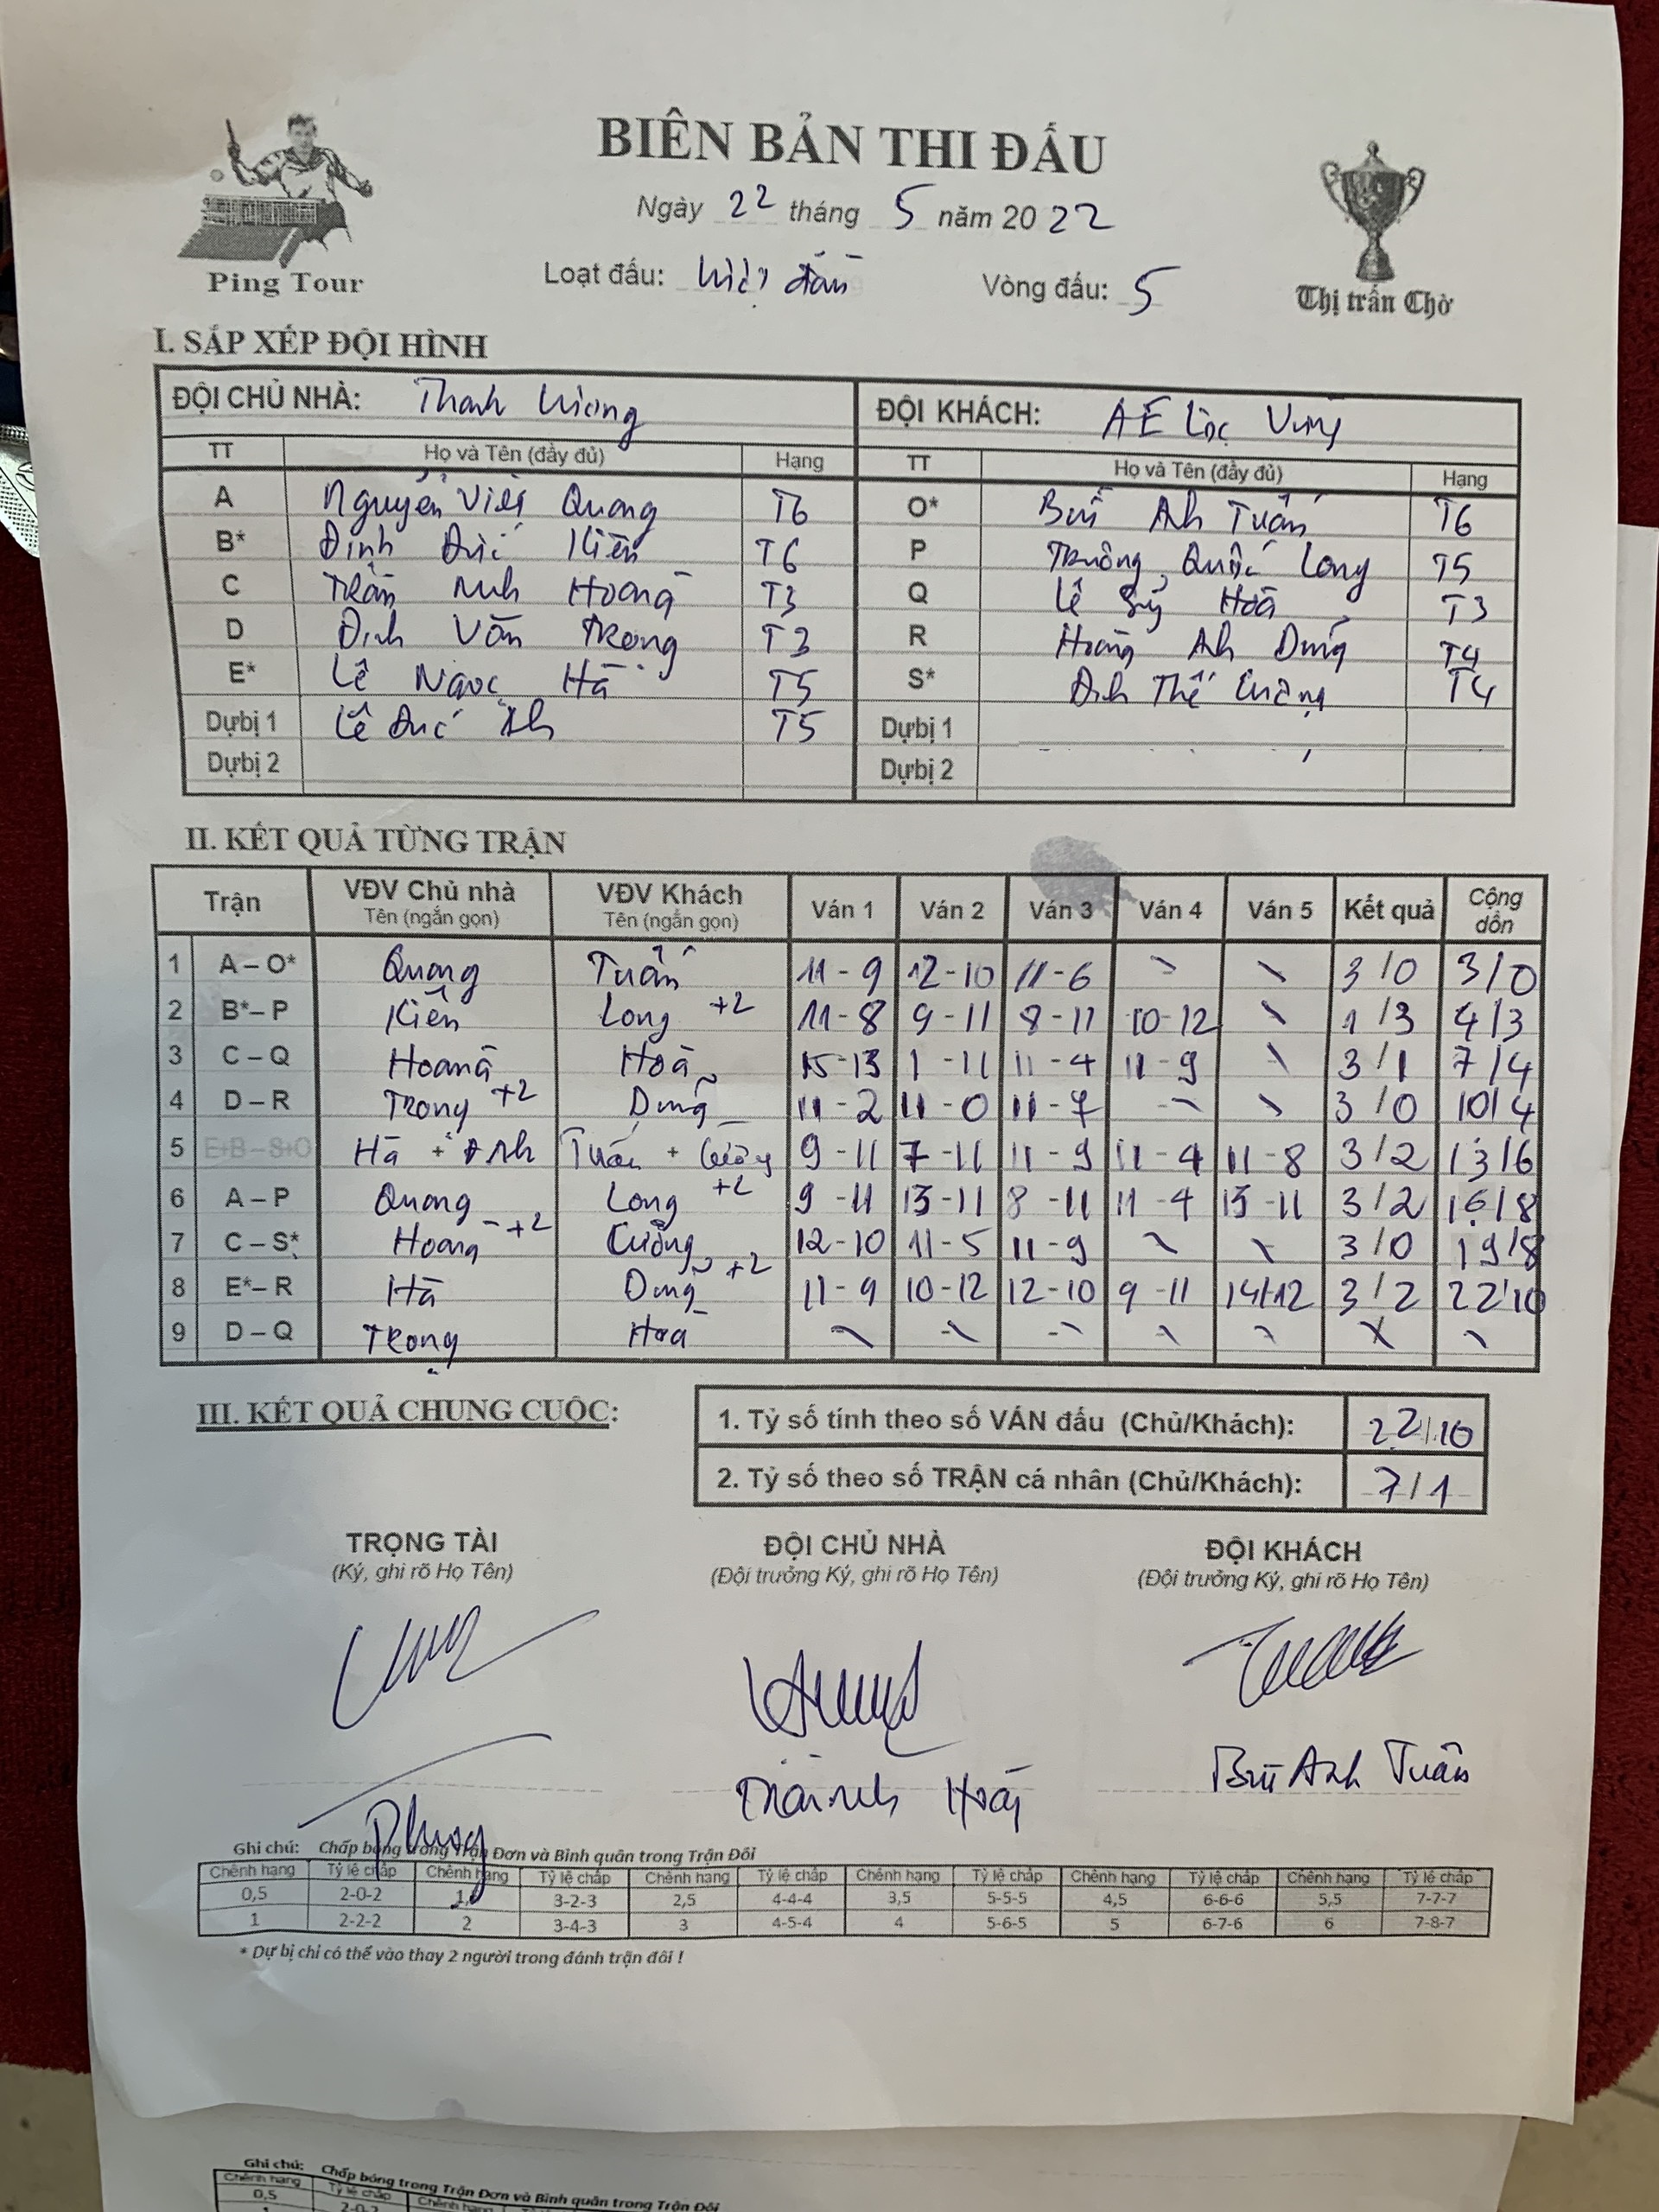 BIÊN BẢN THI ĐẤU
Ngày 22 tháng 5 năm 2022
Ping Tour
Loạt đấu: Vòng đấu: 5
Thị trấn Chờ
I. SẮP XẾP ĐỘI HÌNH
ĐỘI CHỦ NHÀ: Thanh Lương ĐỘI KHÁCH: AE Lộc Vừng
TT Họ và Tên (đầy đủ) Hạng TT Họ và Tên (đầy đủ) Hạng
A Nguyễn Viết Quang T6 O* Bùi Anh Tuấn T6
B* Đinh Đức Kiên T6 P Trường Quốc Long T5
C Trần Anh Hoàng T3 Q Lê Sỹ Hoà T3
D Đinh Văn Trọng T3 R Hoàng Anh Dũng T4
E* Lê Ngọc Hà T5 S* Đinh Thế Cường T4
Dựbị 1 Lê Đức Anh T5 Dựbị 1
Dựbị 2 Dựbị 2
II. KẾT QUẢ TỪNG TRẬN
Trận VĐV Chủ nhà Tên (ngắn gọn) VĐV Khách Tên (ngắn gọn) Ván 1 Ván 2 Ván 3 Ván 4 Ván 5 Kết quả Cộng dồn
1 A – O* Quang Tuấn 11 - 9 12 - 10 11 - 6 \ \ 3 / 0 3 / 0
2 B* – P Kiên Long +2 11 - 8 9 - 11 8 - 11 10 - 12 \ 1 / 3 4 / 3
3 C – Q Hoàng Hoà 15 - 13 1 - 11 11 - 4 11 - 9 \ 3 / 1 7 / 4
4 D – R Trọng +2 Dũng 11 - 2 11 - 0 11 - 7 \ \ 3 / 0 10 / 4
5 E+B – S+O Hà + Đ Anh Tuấn + Cường 9 - 11 7 - 11 11 - 9 11 - 4 11 - 8 3 / 2 13 / 6
6 A – P Quang Long +2 9 - 11 13 - 11 8 - 11 11 - 4 13 - 11 3 / 2 16 / 8
7 C – S* Hoàng +2 Cường 12 - 10 11 - 5 11 - 9 \ \ 3 / 0 19 / 8
8 E* – R Hà Dũng +2 11 - 9 10 - 12 12 - 10 9 - 11 14 - 12 3 / 2 22 / 10
9 D – Q Trọng Hoà \ \ \ \ \ X \
III. KẾT QUẢ CHUNG CUỘC:
1. Tỷ số tính theo số VÁN đấu (Chủ/Khách): 22/10
2. Tỷ số theo số TRẬN cá nhân (Chủ/Khách): 7/1
TRỌNG TÀI ĐỘI CHỦ NHÀ ĐỘI KHÁCH
(Ký, ghi rõ Họ Tên) (Đội trưởng Ký, ghi rõ Họ Tên) (Đội trưởng Ký, ghi rõ Họ Tên)
Bùi Anh Tuấn
Ghi chú: Chấp bóng trong Trận Đơn và Bình quân trong Trận Đôi
Chênh hạng Tỷ lệ chấp Chênh hạng Tỷ lệ chấp Chênh hạng Tỷ lệ chấp Chênh hạng Tỷ lệ chấp Chênh hạng Tỷ lệ chấp Chênh hạng Tỷ lệ chấp
0,5 2-0-2 3-2-3 2,5 4-4-4 3,5 5-5-5 4,5 6-6-6 5,5 7-7-7
1 2-2-2 2 3-4-3 3 4-5-4 4 5-6-5 5 6-7-6 6 7-8-7
* Dự bị chỉ có thể vào thay 2 người trong đánh trận đôi !
Ghi chú: Chấp bóng trong Trận Đơn và Bình quân trong Trận Đôi
Chênh hạng
0,5 2-0-2